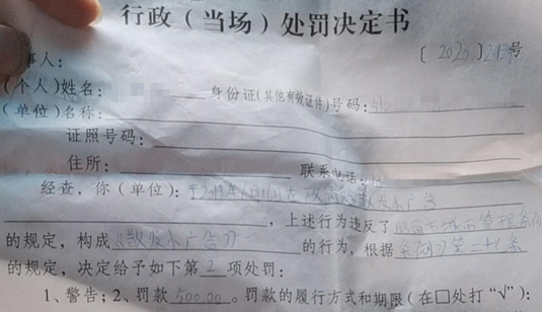 行政（当场）处罚决定书
〔2020〕21号
事人：
（个人）姓名： 身份证（其他有效证件）号码：
（单位）名称：
证照号码：
住所： 联系电话：
经查，你（单位）： 散发小广告
，上述行为违反了 管理条例
的规定，构成《散发小广告》 的行为，根据 条例》第二十七条
的规定，决定给予如下第2项处罚：
1、警告；2、罚款500.00。罚款的履行方式和期限（在□处打“√”）：